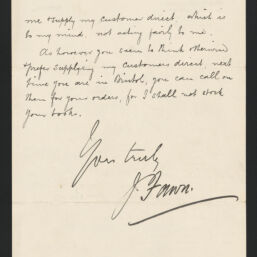 me & supply my customer direct, which is
to my mind, not acting fairly to me.
As however you seem to think otherwise
& prefer supplying my customers direct, next
time you are in Bristol, you can call on
them for your orders, for I shall not stock
your books.
Yours truly
J. Fawn.